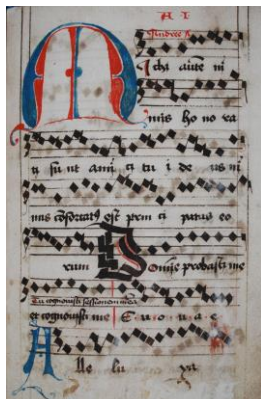 A I
ichi autē ni
mis ho no ra
ti sunt ami ci tu i de us ni
mis cōfortatꝰ est prin ci patus eo
rum Domine probasti me
Tu cognouisti sessionem mea
et cognouisti me E u o u a e
A
lle lu ya